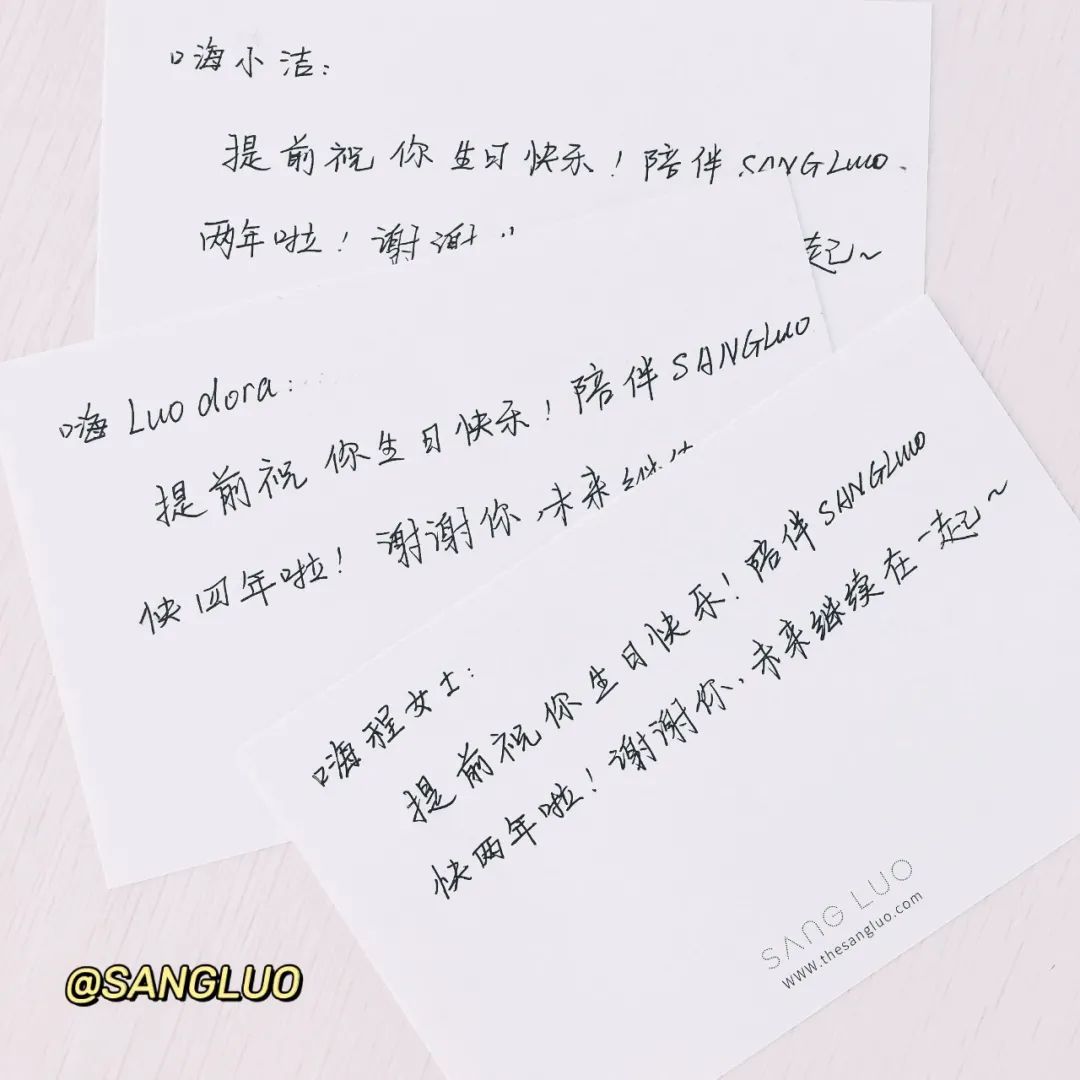 嗨小洁：
提前祝你生日快乐！陪伴SANGLUO
两年啦！谢谢 起~
嗨Luo dora：
提前祝你生日快乐！陪伴SANGLUO
快四年啦！谢谢你，未来
嗨程女士：
提前祝你生日快乐！陪伴SANGLUO
快两年啦！谢谢你，未来继续在一起~
SANG LUO
www.thesangluo.com
@SANGLUO